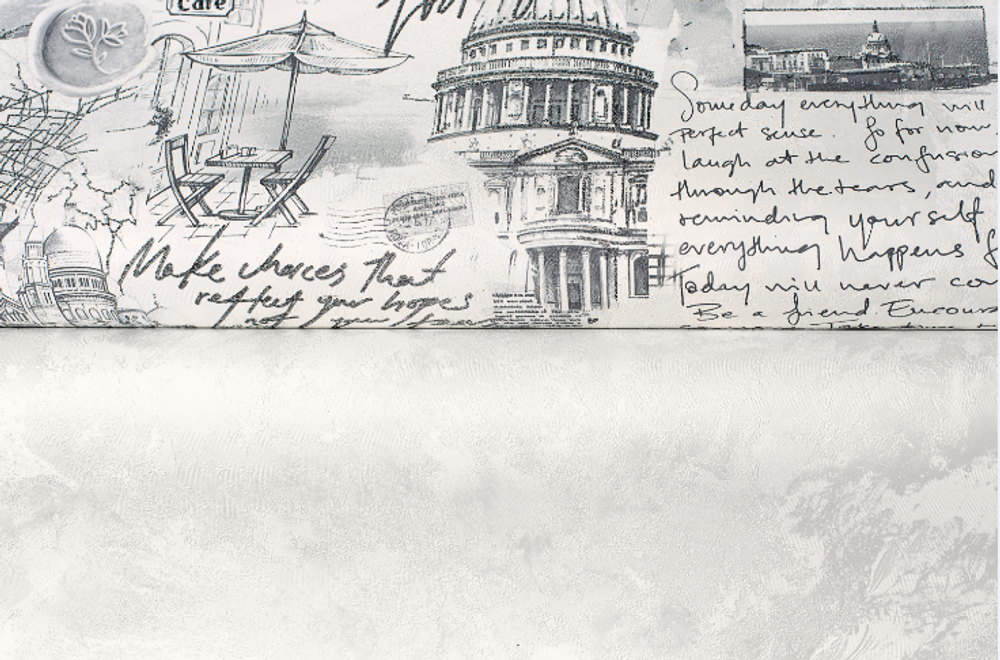 Cafe
Someday everything will
perfect sense. So for now
laugh at the confusion
through the tears, and
reminding yourself
everything happens f
Today will never co
Be a friend. Encoura
Make choices that
reflect your hopes
not your fears